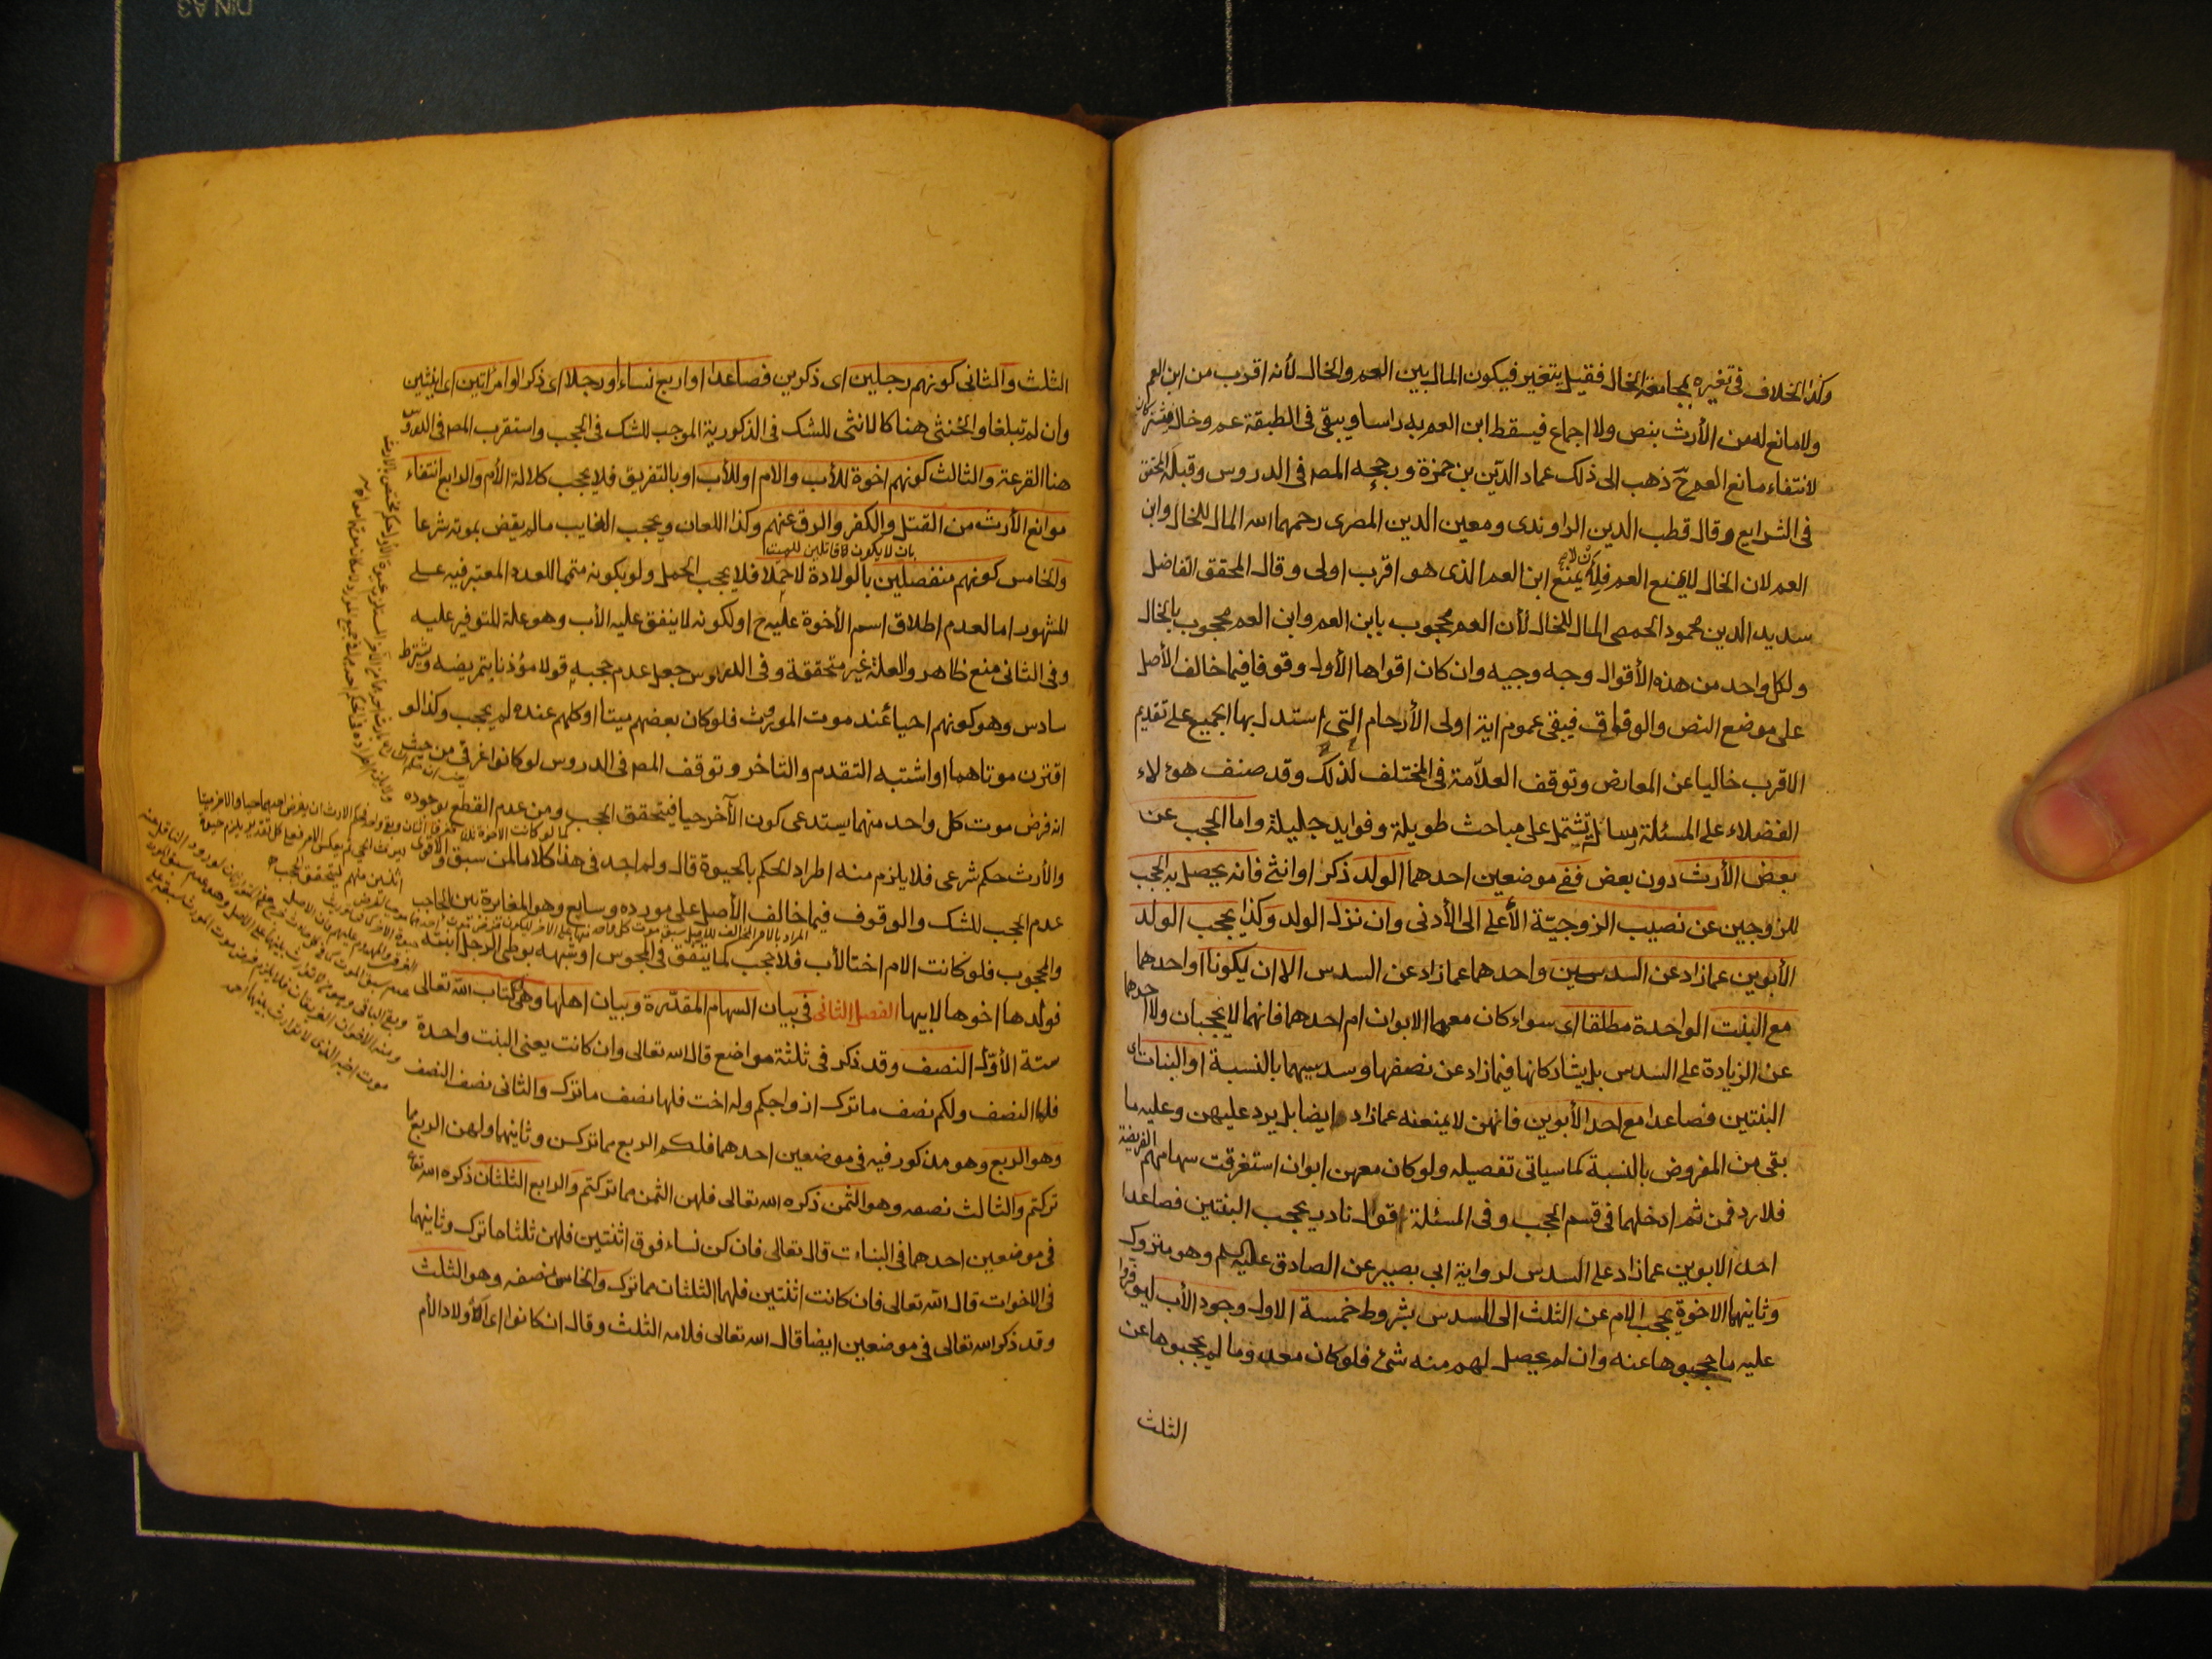 وكذا الخلاف في تغيره بمجامعة الخال فقيل يتغير فيكون المال بين العم والخال لأنه اقرب من ابن العم
ولا مانع له من الأرث بنص ولا اجماع فيسقط ابن العم به راسا ويبقى في الطبقة عم وخال فيشتركان
لانتفاء مانع العم ح ذهب الى ذلك عماد الدين بن حمزة ورجحه المص في الدروس وقبله المحقق
في الشرايع وقال قطب الدين الراوندى ومعين الدين المصرى رحمهما الله المال للخال وابن
العم لان الخال لا يمنع العم فلأن لا يمنع ابن العم الذى هو اقرب اولى وقال المحقق الفاضل
سديد الدين محمود الحمصى المال للخال لأن العم محجوب بابن العم وابن العم محجوب بالخال
ولكل واحد من هذه الأقوال وجه وجيه وان كان اقواها الأول وقوفا فيما خالف الأصل
على موضع النص والوفاق فيبقى عموم اية اولى الأرحام التى استدل بها الجميع على تقديم
الاقرب خاليا عن المعارض وتوقف العلامة في المختلف لذلك وقد صنف هؤلاء
الفضلاء على المسئلة رسائل تشتمل على مباحث طويلة وفوايد جليلة واما الحجب عن
بعض الأرث دون بعض ففي موضعين احدهما الولد ذكرا وانثى فانه يحصل به الحجب
للزوجين عن نصيب الزوجية الأعلى الى الأدنى وان نزل الولد وكذا يحجب الولد
الأبوين عما زاد عن السدسين واحدهما عما زاد عن السدس الا ان يكونا او احدهما
مع البنت الواحدة مطلقا اى سواء كان معها الابوان ام احدهما فانهما لا يحجبان ولا احدهما
عن الزيادة على السدس بل يشاركانها فيما زاد عن نصفها وسدسيهما بالنسبة او البنات اى
البنتين فصاعدا مع احد الأبوين فانهن لا يمنعنه عما زاد ايضا بل يرد عليهن وعليه ما
بقى من المفروض بالنسبة كما سياتى تفصيله ولو كان معهن ابوان استغرقت سهامهم الفريضة
فلا رد فمن ثم ادخلهما في قسم الحجب وفي المسئلة قول نادر بحجب البنتين فصاعدا
احد الابوين عما زاد على السدس لرواية ابى بصير عن الصادق عليه السلم وهو متروك
وثانيهما الاخوة يحجب الام عن الثلث الى السدس بشروط خمسة الاول وجود الأب ليوفروا
عليه ما حجبوها عنه وان لم يحصل لهم منه شئ فلو كان معدوما لم يحجبوها عن
الثلث
الثلث والثانى كونهم رجلين اى ذكرين فصاعدا او اربع نساء او رجلا اى ذكرا وامراتين اى انثيين
وان لم تبلغا والخنثى هنا كالانثى للشك في الذكورية الموجب للشك في الحجب واستقرب المص في الدروس
هنا القرعة والثالث كونهم اخوة للأب والام او للأب او بالتفريق فلا يحجب كلالة الأم والرابع انتفاء
موانع الأرث من القتل والكفر والرق عنهم وكذا اللعان ويحجب الغايب ما لم يقض بموته شرعا
بان لا يكونوا قاتلين للميت
والخامس كونهم منفصلين بالولادة لا حملا فلا يحجب الحمل ولو بكونه متمما للعدد المعتبر فيه على
المشهور اما لعدم اطلاق اسم الأخوة عليه ح او لكونه لا ينفق عليه الأب وهو علة التوفير عليه
وفي الثانى منع ظاهر والعلة غير متحققة وفي الدروس جعل عدم حجبه قولا مؤذنا بتمريضه ويشترط
سادس وهو كونهم احيا عند موت المورث فلو كان بعضهم ميتا او كلهم عنده لم يحجب وكذا لو
اقترن موتاهما او اشتبه التقدم والتاخر وتوقف المص في الدروس لو كانوا غرقى من حيث
ان فرض موت كل واحد منهما يستدعى كون الآخر حيا فيتحقق الحجب ومن عدم القطع بوجوده
والأرث حكم شرعى فلا يلزم منه اطراد الحكم بالحيوة قال ولم اجد في هذا كلاما لمن سبق والأقوى
عدم الحجب للشك والوقوف فيما خالف الأصل على مورده وسابع وهو المغايرة بين الحاجب
والمحجوب فلو كانت الام اختا لأب فلا حجب كما يتفق في المجوس او شبهه بوطى الرجل ابنته
فولدها اخوها لابيها الفصل الثانى في بيان السهام المقدرة وبيان اهلها وهى في كتاب الله تعالى
ستة الأول النصف وقد ذكر في ثلثة مواضع قال الله تعالى وان كانت يعنى البنت واحدة
فلها النصف ولكم نصف ما ترك ازواجكم وله اخت فلها نصف ما ترك والثانى نصف النصف
وهو الربع وهو مذكور فيه في موضعين احدهما فلكم الربع مما تركن وثانيهما ولهن الربع مما
تركتم والثالث نصفه وهو الثمن ذكره الله تعالى فلهن الثمن مما تركتم والرابع الثلثان ذكره الله تعالى
في موضعين احدهما في البنات قال تعالى فان كن نساء فوق اثنتين فلهن ثلثا ما ترك وثانيهما
في الاخوات قال الله تعالى فان كانت اثنتين فلهما الثلثان مما ترك والخامس نصفه وهو الثلث
وقد ذكره الله تعالى في موضعين ايضا قال الله تعالى فلامه الثلث وقال ان كانوا اى الأولاد الأم